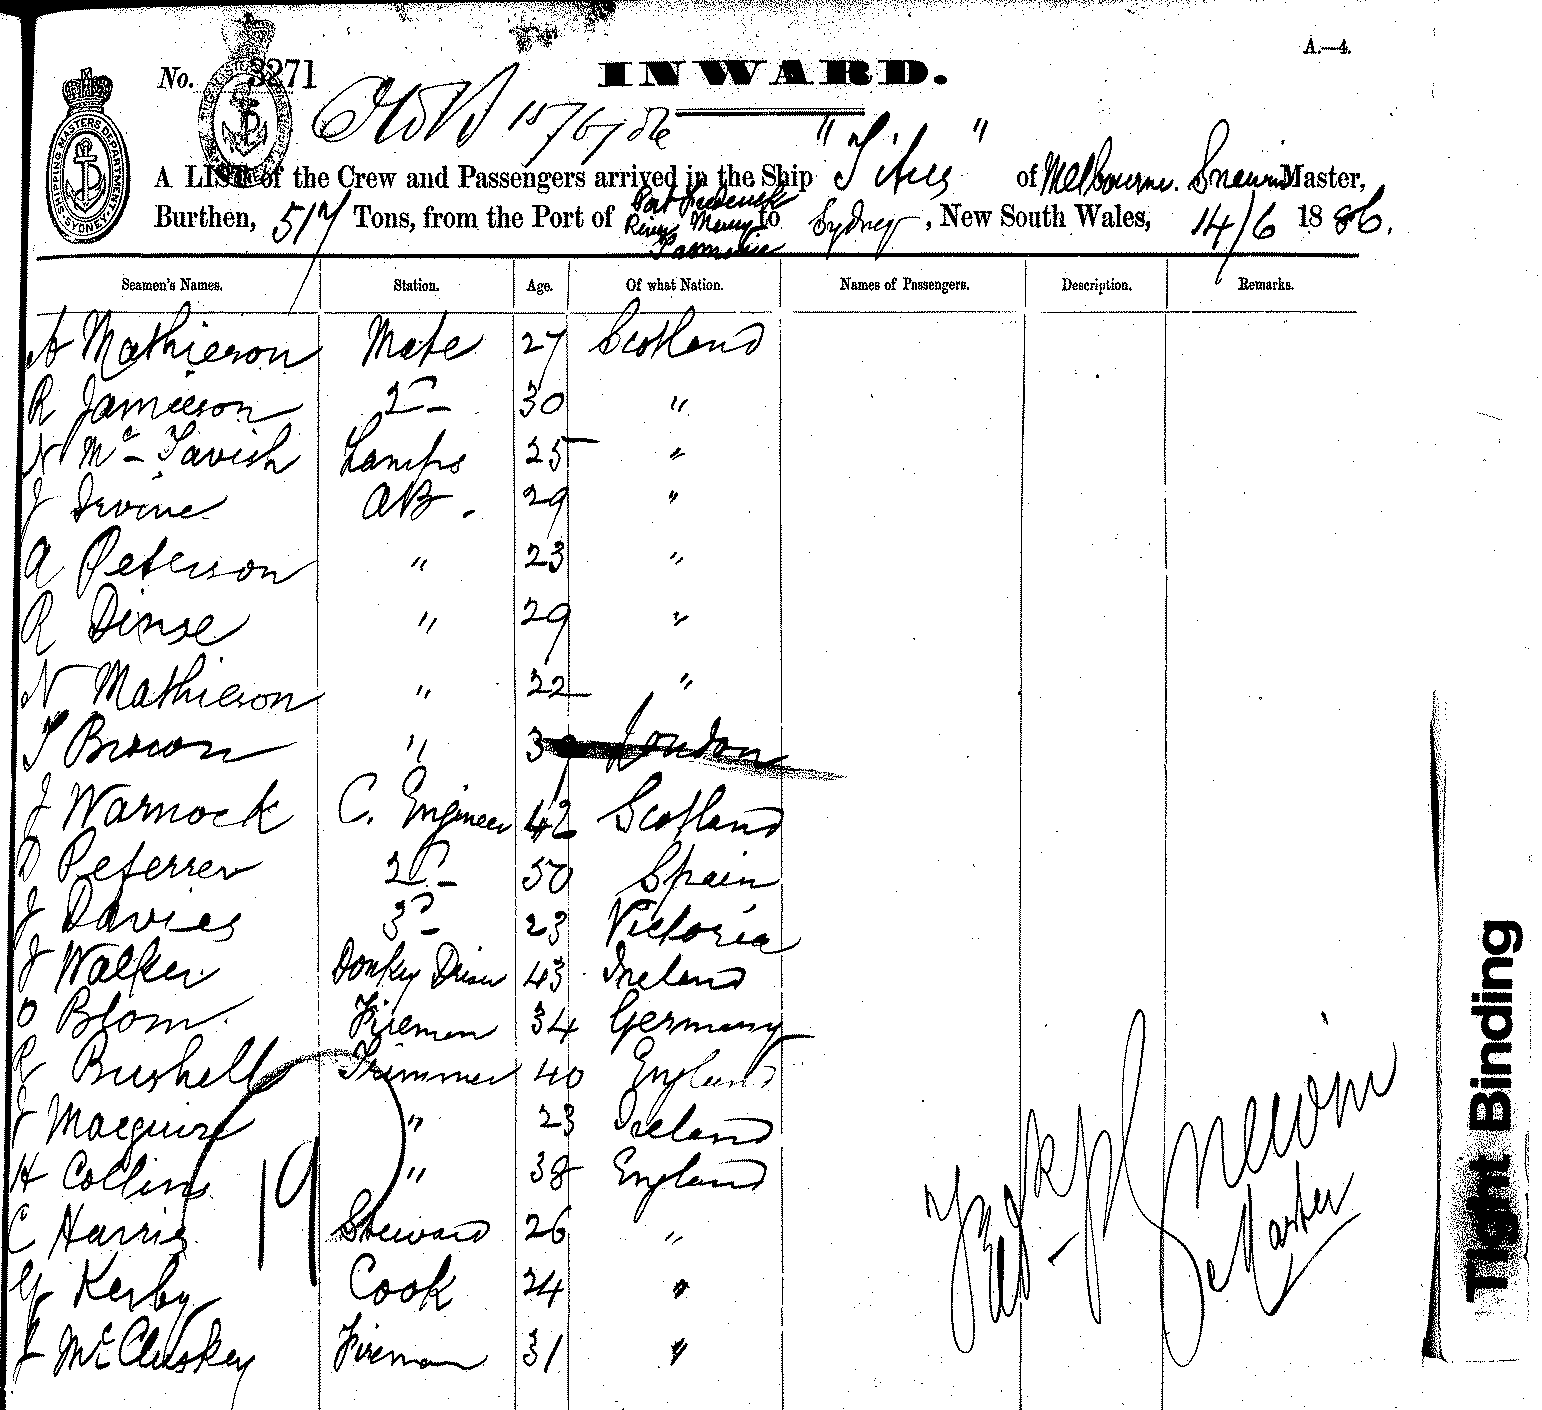 A.—4.
No. 3271
INWARD.
15/6/86
A LIST of the Crew and Passengers arrived in the Ship "Titus" of Melbourne. Snewin Master,
Burthen, 517 Tons, from the Port of Port Frederick River Mersey Tasmania to Sydney, New South Wales, 14/6 1886.
SHIPPING MASTERS DEPARTMENT SYDNEY
Seamen's Names. Station. Age. Of what Nation. Names of Passengers. Description. Remarks.
A Mathieson Mate 27 Scotland
R Jamieson 2d 30 "
N Mc Tavish Lamps 25 "
J Irvine AB. 29 "
A Peterson " 23 "
R Dinse " 29 "
N Mathieson " 32 "
T Brown " 39 London
J Warnock C. Engineer 42 Scotland
D Peterrer 2d 50 Spain
J Davies 3d 23 Victoria
J Walker Donkey Driver 43 Ireland
O Blom. Fireman 34 Germany
R Bushell Trimmer 40 England
J Macguire " 23 Ireland
H Collins " 38 England
C Harris Steward 26 "
G Kerby Cook 24 "
J McCluskey Fireman 31 "
19
Fredk Snewin
Master
Tight Binding